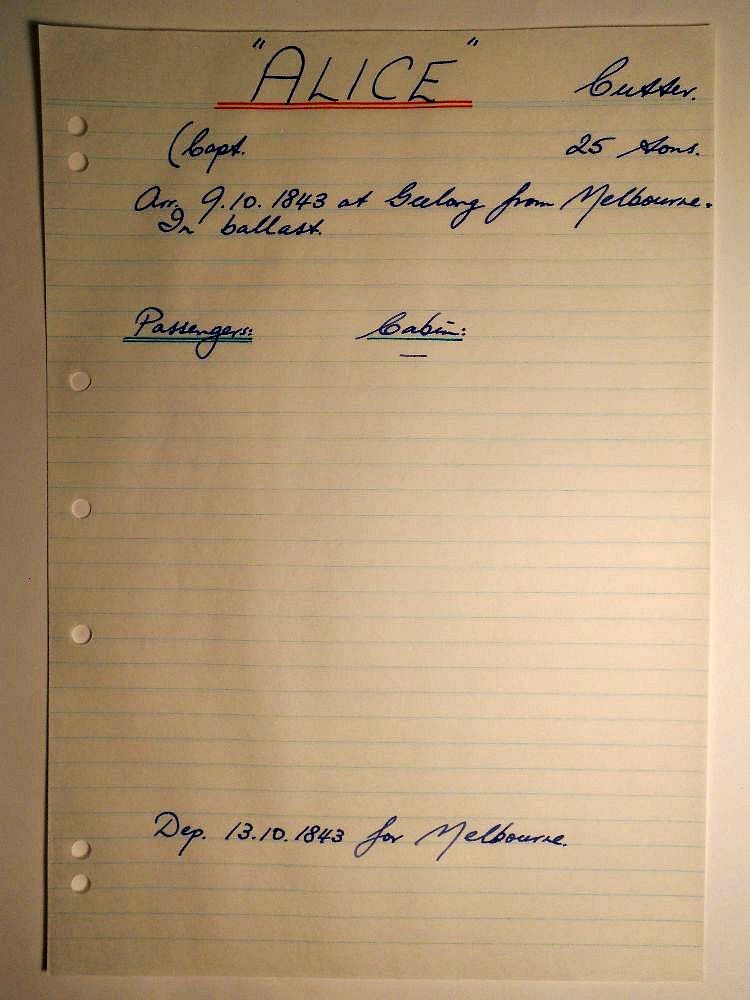 "ALICE" Cutter.
(Capt. 25 tons.
Arr. 9.10.1843 at Geelong from Melbourne.
In ballast.
Passengers: Cabin:
—
Dep. 13.10.1843 for Melbourne.